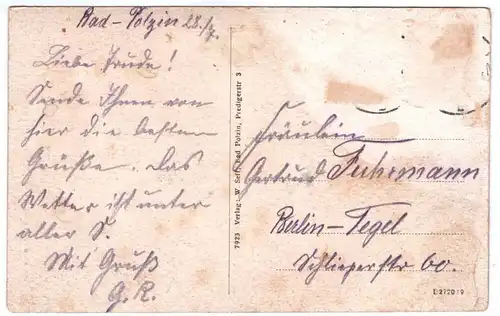 Bad-Polzin 28./7.
Liebe Trude!
Sende Ihnen von
hier die besten
Grüße. Das
Wetter ist unter
aller S.
Mit Gruß
G. R.
7923 Verlag: W. Bad Polzin, Predigerstr 3
Fräulein
Gertrud Fuhrmann
Berlin-Tegel
Schlieperstr 60.
D 2720/9